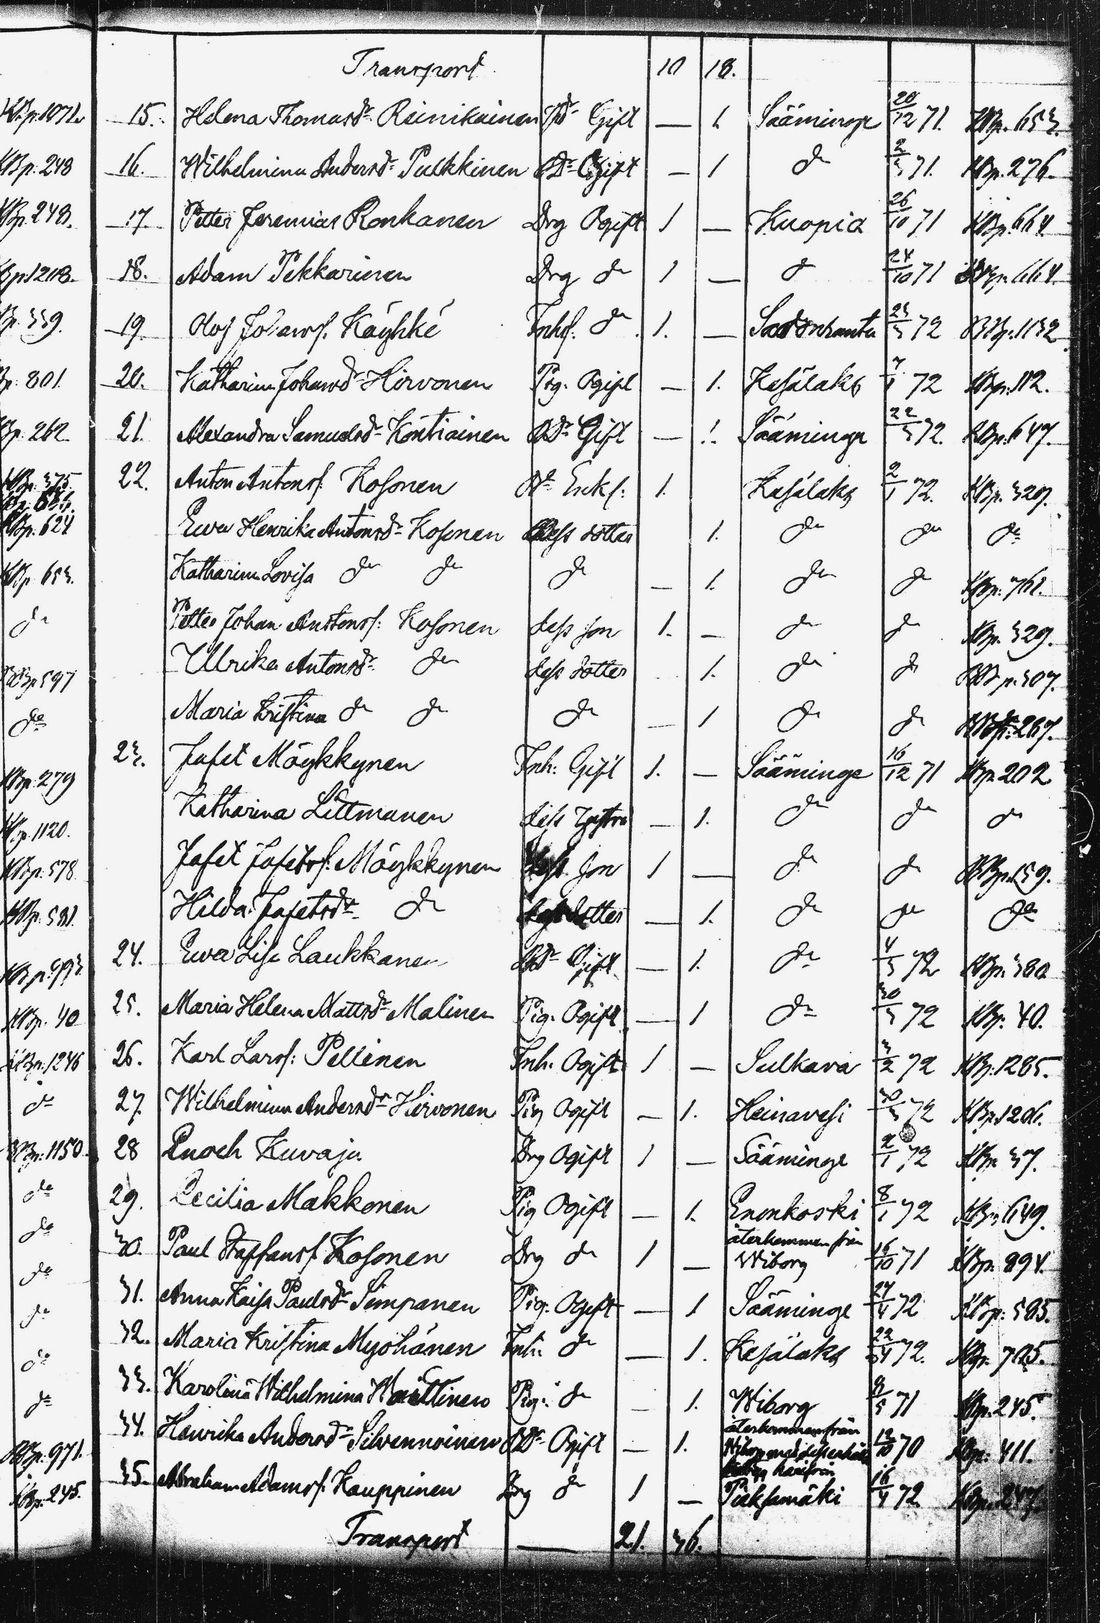 Transport 10 18.
KB.p.1071. 15. Helena Thomasdr Reinikainen Pd Gift — 1. Sääminge 20/12 71. KBp. 653.
KBp. 248 16. Wilhelmina Andersdr Pulkkinen Gift — 1 do 71. KBp. 276.
KBp. 248. 17. Petter Jeremias Ronkanen Drg Ogift 1 — Kuopio 26/10 71 KBp. 664.
KBp 1208. 18. Adam Pekkarinen Drg do 1 — do 24/10 71 KBp. 664.
339. 19. Inhs. do 1. — 72 KBp. 1132.
801. 20. Katharina Johansdr Hirvonen Pig. Ogift — 1. Kesälaks 7/1 72 KBp. 112.
262. 21. Alexandra Samuelsdr Kontiainen Gift — 1. Sääminge 22/3 72. KBp. 647.
KBp. 375. 22. Anton Antonsf. Kosonen Enkl: 1. Kesälaks 2/1 72. KBp. 329.
KBp. 624 Ewa Henrika Antonsdr Kosonen dess dotter 1. do do do
KBp. 653. Katharina Lovisa do do do — 1. do do KBp. 761.
do Petter Johan Antonsf: Kosonen dess son 1. — do do KBp. 329.
KBp 597 Ulrika Antonsdr do dess dotter 1. do do KBp. 307.
do Maria Kristina do do do — 1 do do 267.
KBp. 279 23. Jafet Möykkynen Inh: Gift 1. — Sääminge 16/12 71 KBp. 202
KBp. 1120. Katharina Littmanen dess hustru — 1. do do do
KBp. 578 Jafet Jafetsf. Möykkynen dess son 1 — do do KBp. 159.
KBp. 581. Hilda Jafetsdr do dess dotter — 1. do do do
KBp. 993 24. Ewa Lisa Laukkanen Gift — 1. do 4/3 72 KBp. 380
KBp. 40 25. Maria Helena Mattsdr Malinen Pig. Ogift — 1 do 30/3 72 KBp. 40.
KBp. 1246 26. Karl Larsf: Pellinen Inh: Ogift 1 — Sulkava 3/2 72 KBp. 1285.
do 27. Wilhelmina Andersdr Hirvonen Pig Ogift — 1. Heinavesi 30/3 72 KBp 1206.
KBp. 1150. 28 Enoch Kuvaja Drg Ogift 1 — Sääminge 2/1 72 KBp. 37.
do 29. Cecilia Makkonen Pig Ogift — 1. Enonkoski 8/1 72 KBp. 649.
do 30. Paul Staffansf. Kosonen Drg do 1 — återkommen från Wiborg 16/10 71 KBp. 894.
do 31. Anna Kaisa Paulsdr Simpanen Pig. Ogift — 1 Sääminge 27/4 72 KBp. 585.
do 32. Maria Kristina Myöhänen Inh: do — 1. Kesälaks 22/4 72. KBp. 725.
do 33. Karolina Wilhelmina Pig. do — 1. Wiborg 8/5 71 KBp. 245.
do 34. Henrika Andersdr Silvennoinen Ogift — 1. återkommen från 12/10 70 KBp. 411.
KBp. 971.
KBp. 245. 35. Abraham Adamsf. Kauppinen Drg do 1 — Pieksamäki 16/4 72. KBp. 247.
Transport — 21. 36.